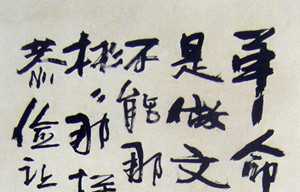 革命
是做文
不能那
彬〻那样
恭俭让